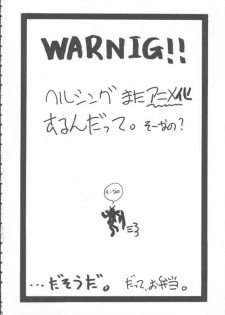 WARNIG!!
ヘルシングまたアニメ化
するんだって。そーなの?
そーなの
…だそうだ。だって、お弁当。